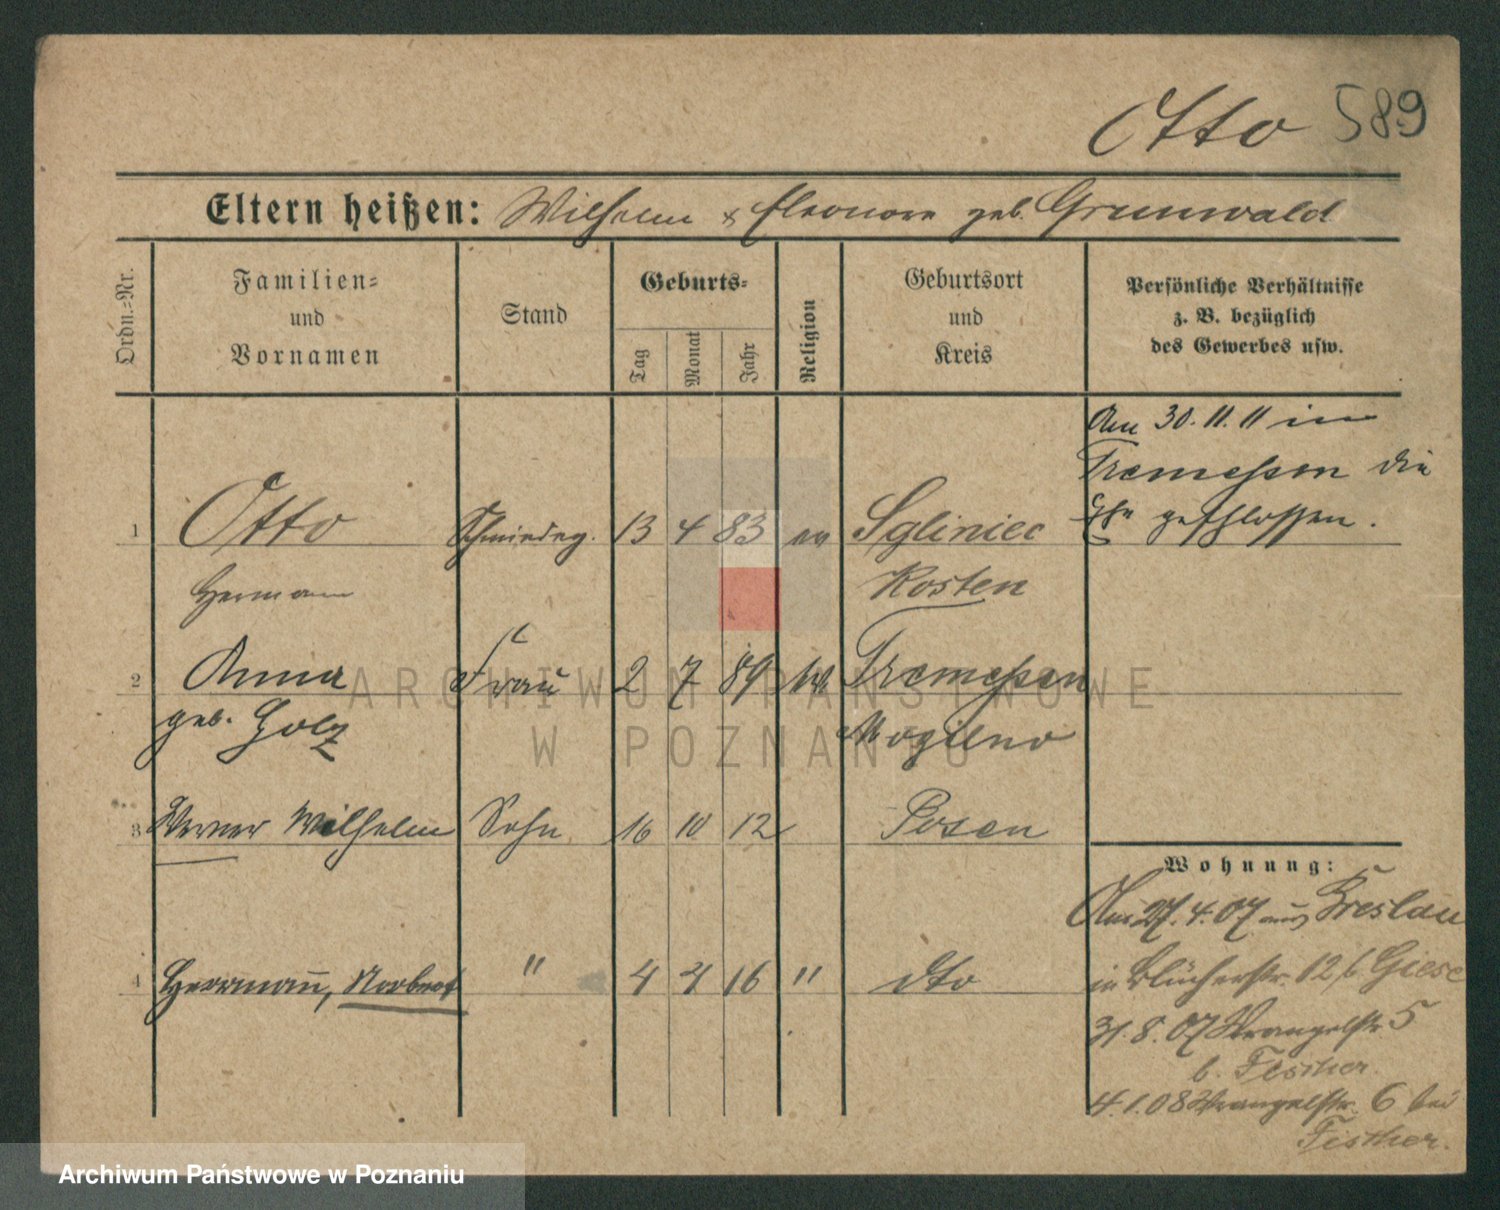 Otto 589
Eltern heißen: Wilhelm & Eleonore geb. Grunwald
Ordn.=Nr.
Familien=
und
Vornamen
Stand
Geburts=
Tag
Monat
Jahr
Religion
Geburtsort
und
Kreis
Persönliche Verhältnisse
z. B. bezüglich
des Gewerbes usw.
Am 30.11.11 in
Tremessen die
Ehe geschlossen.
1 Otto Schmiedeg. 13 4 83 ev Sgliniec
Hermann Kosten
2 Anna Frau 2 7 89 Tremessen
geb. Golz Mogilno
3 Werner Wilhelm Sohn 16 10 12 Posen
4 Herrmann, Norbert " 4 4 16 " dto
Wohnung:
Am 27.4.07 aus Breslau
in Blücherstr. 12 b Giese
31.8.07 Wrangelstr. 5
b. Fischer.
4.1.08 Wrangelstr. 6 bei
Fischer.
ARCHIWUM PAŃSTWOWE
W POZNANIU
Archiwum Państwowe w Poznaniu